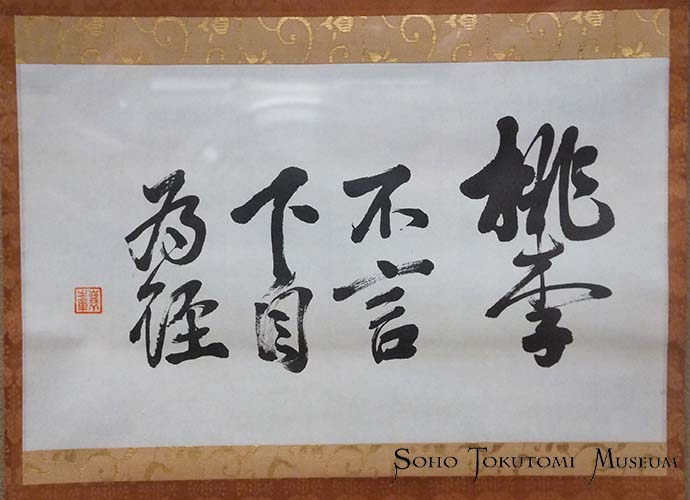 桃李
不言
下自
為徑
Soho Tokutomi Museum